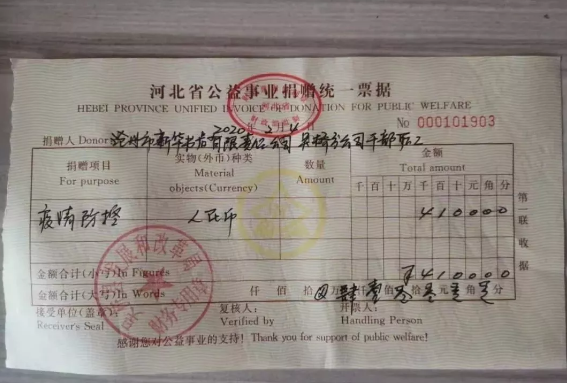 河北省公益事业捐赠统一票据
HEBEI PROVINCE UNIFIED INVOICE FOR DONATION FOR PUBLIC WELFARE
2020年2月4日 No 000101903
捐赠人Donor 沧州市新华书店有限责任公司吴桥分公司干部职工
捐赠项目 实物(外币)种类 数量 金额
For purpose Material objects(Currency) Amount Total amount
千百十万千百十元角分
疫情防控 人民币 410000
金额合计(小写)In Figures ¥410000
金额合计(大写)In Words 仟佰拾万仟佰拾元角分
接受单位(盖章) 复核人: 开票人:
Receiver's Seal Verified by Handling Person
感谢您对公益事业的支持! Thank you for support of public welfare!
第一联收据
发展和改革局
财务专用章